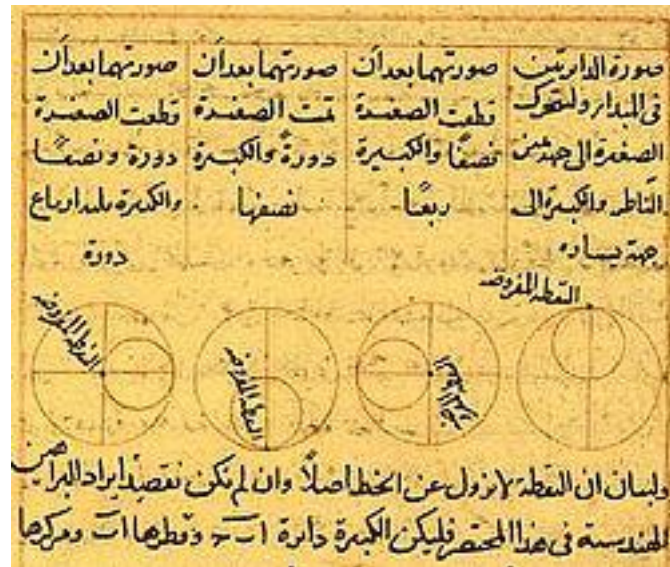 صورة الدايرتين
فى المبدا ولتتحرك
الصغيرة الى جهة يمين
الناظر والكبيرة الى
جهة يساره
صورتهما بعد أن
قطعت الصغيرة
نصفًا والكبيرة
ربعًا
صورتهما بعد أن
تمت الصغيرة
دورةً والكبيرة
نصفها
صورتهما بعد أن
قطعت الصغيرة
دورة ونصفًا
والكبيرة ثلثة ارباع
دورة
النقطة المفروضة
النقطة المفروضة
النقطة المفروضة
النقطة المفروضة
ولبيان ان النقطة لا تزول عن الخط اصلاً وان لم نكن نقصد ايراد البراهين
الهندسية فى هذا المختصر فليكن الكبيرة دايرة اب ج وقطرها اب ومركزها